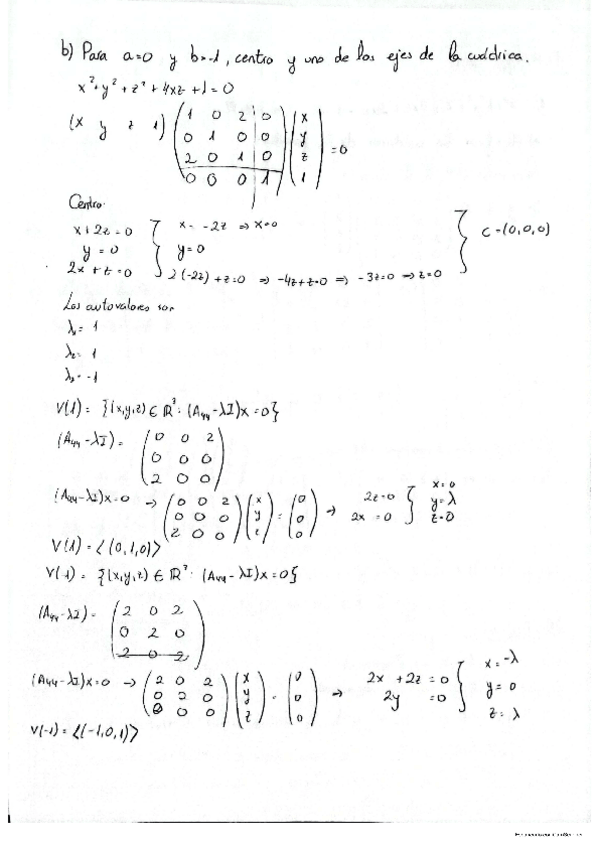 b) Para a=0 y b=-1, centro y uno de los ejes de la cuádrica.
x²+y²+z²+4xz+1=0
(x y z 1) (1 0 2 0 / 0 1 0 0 / 2 0 1 0 / 0 0 0 1) (x / y / z / 1) =0
Centro.
x+2z=0 } x=-2z ⇒ x=0
y=0 } y=0
2x+z=0 } 2(-2z)+z=0 ⇒ -4z+z=0 ⇒ -3z=0 ⇒ z=0 } C=(0,0,0)
Los autovalores son
λ₁= 1
λ₂= 1
λ₃= -1
V(1)= {(x,y,z) ∈ ℝ³: (A₄₄-λI)x=0}
(A₄₄-λI)= (0 0 2 / 0 0 0 / 2 0 0)
(A₄₄-λI)x=0 → (0 0 2 / 0 0 0 / 2 0 0) (x / y / z) = (0 / 0 / 0) → 2z=0 / 2x=0 } x=0 / y=λ / z=0
V(1)=<(0,1,0)>
V(-1)= {(x,y,z) ∈ ℝ³: (A₄₄-λI)x=0}
(A₄₄-λI)= (2 0 2 / 0 2 0 / 2 0 2)
(A₄₄-λI)x=0 → (2 0 2 / 0 2 0 / 0 0 0) (x / y / z) = (0 / 0 / 0) → 2x+2z=0 / 2y=0 } x=-λ / y=0 / z=λ
V(-1)=<(-1,0,1)>